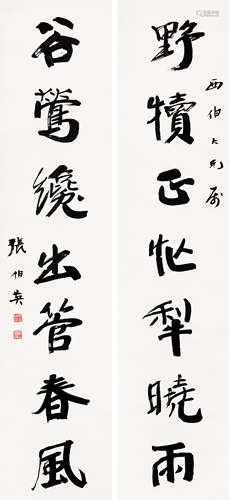 野犢正忙犁曉雨
西伯大兄屬
谷鶯纔出管春風
張伯英